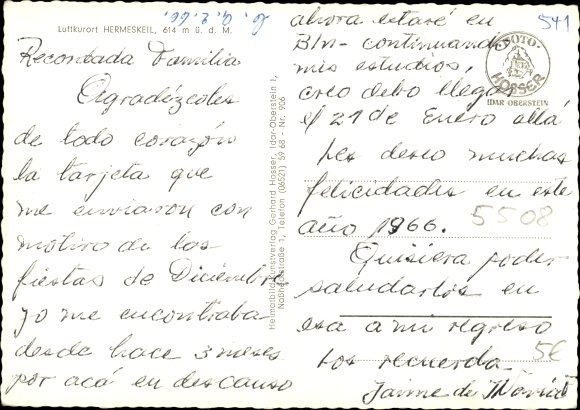 Luftkurort HERMESKEIL, 614 m ü. d. M.
Recordada Familia
Agradézcoles
de todo corazón
la tarjeta que
me enviaron con
motivo de las
fiestas de Diciembre
yo me encontraba
desde hace 3 meses
por acá en descanso
Heimatbild Kunstverlag Gerhard Hosser, Idar-Oberstein 1,
Naßheckstraße 1, Telefon (06521) 59 68 - Nr. 906
541
FOTO-
HOSSER
IDAR OBERSTEIN
ahora estaré en
B/n- continuando
mis estudios,
creo debo llegar
el 21 de Enero allá
les deseo muchas
felicidades en este
año 1966.
5508
Quisiera poder
saludarlos en
esa a mi regreso
5€
Los recuerda
Jaime de